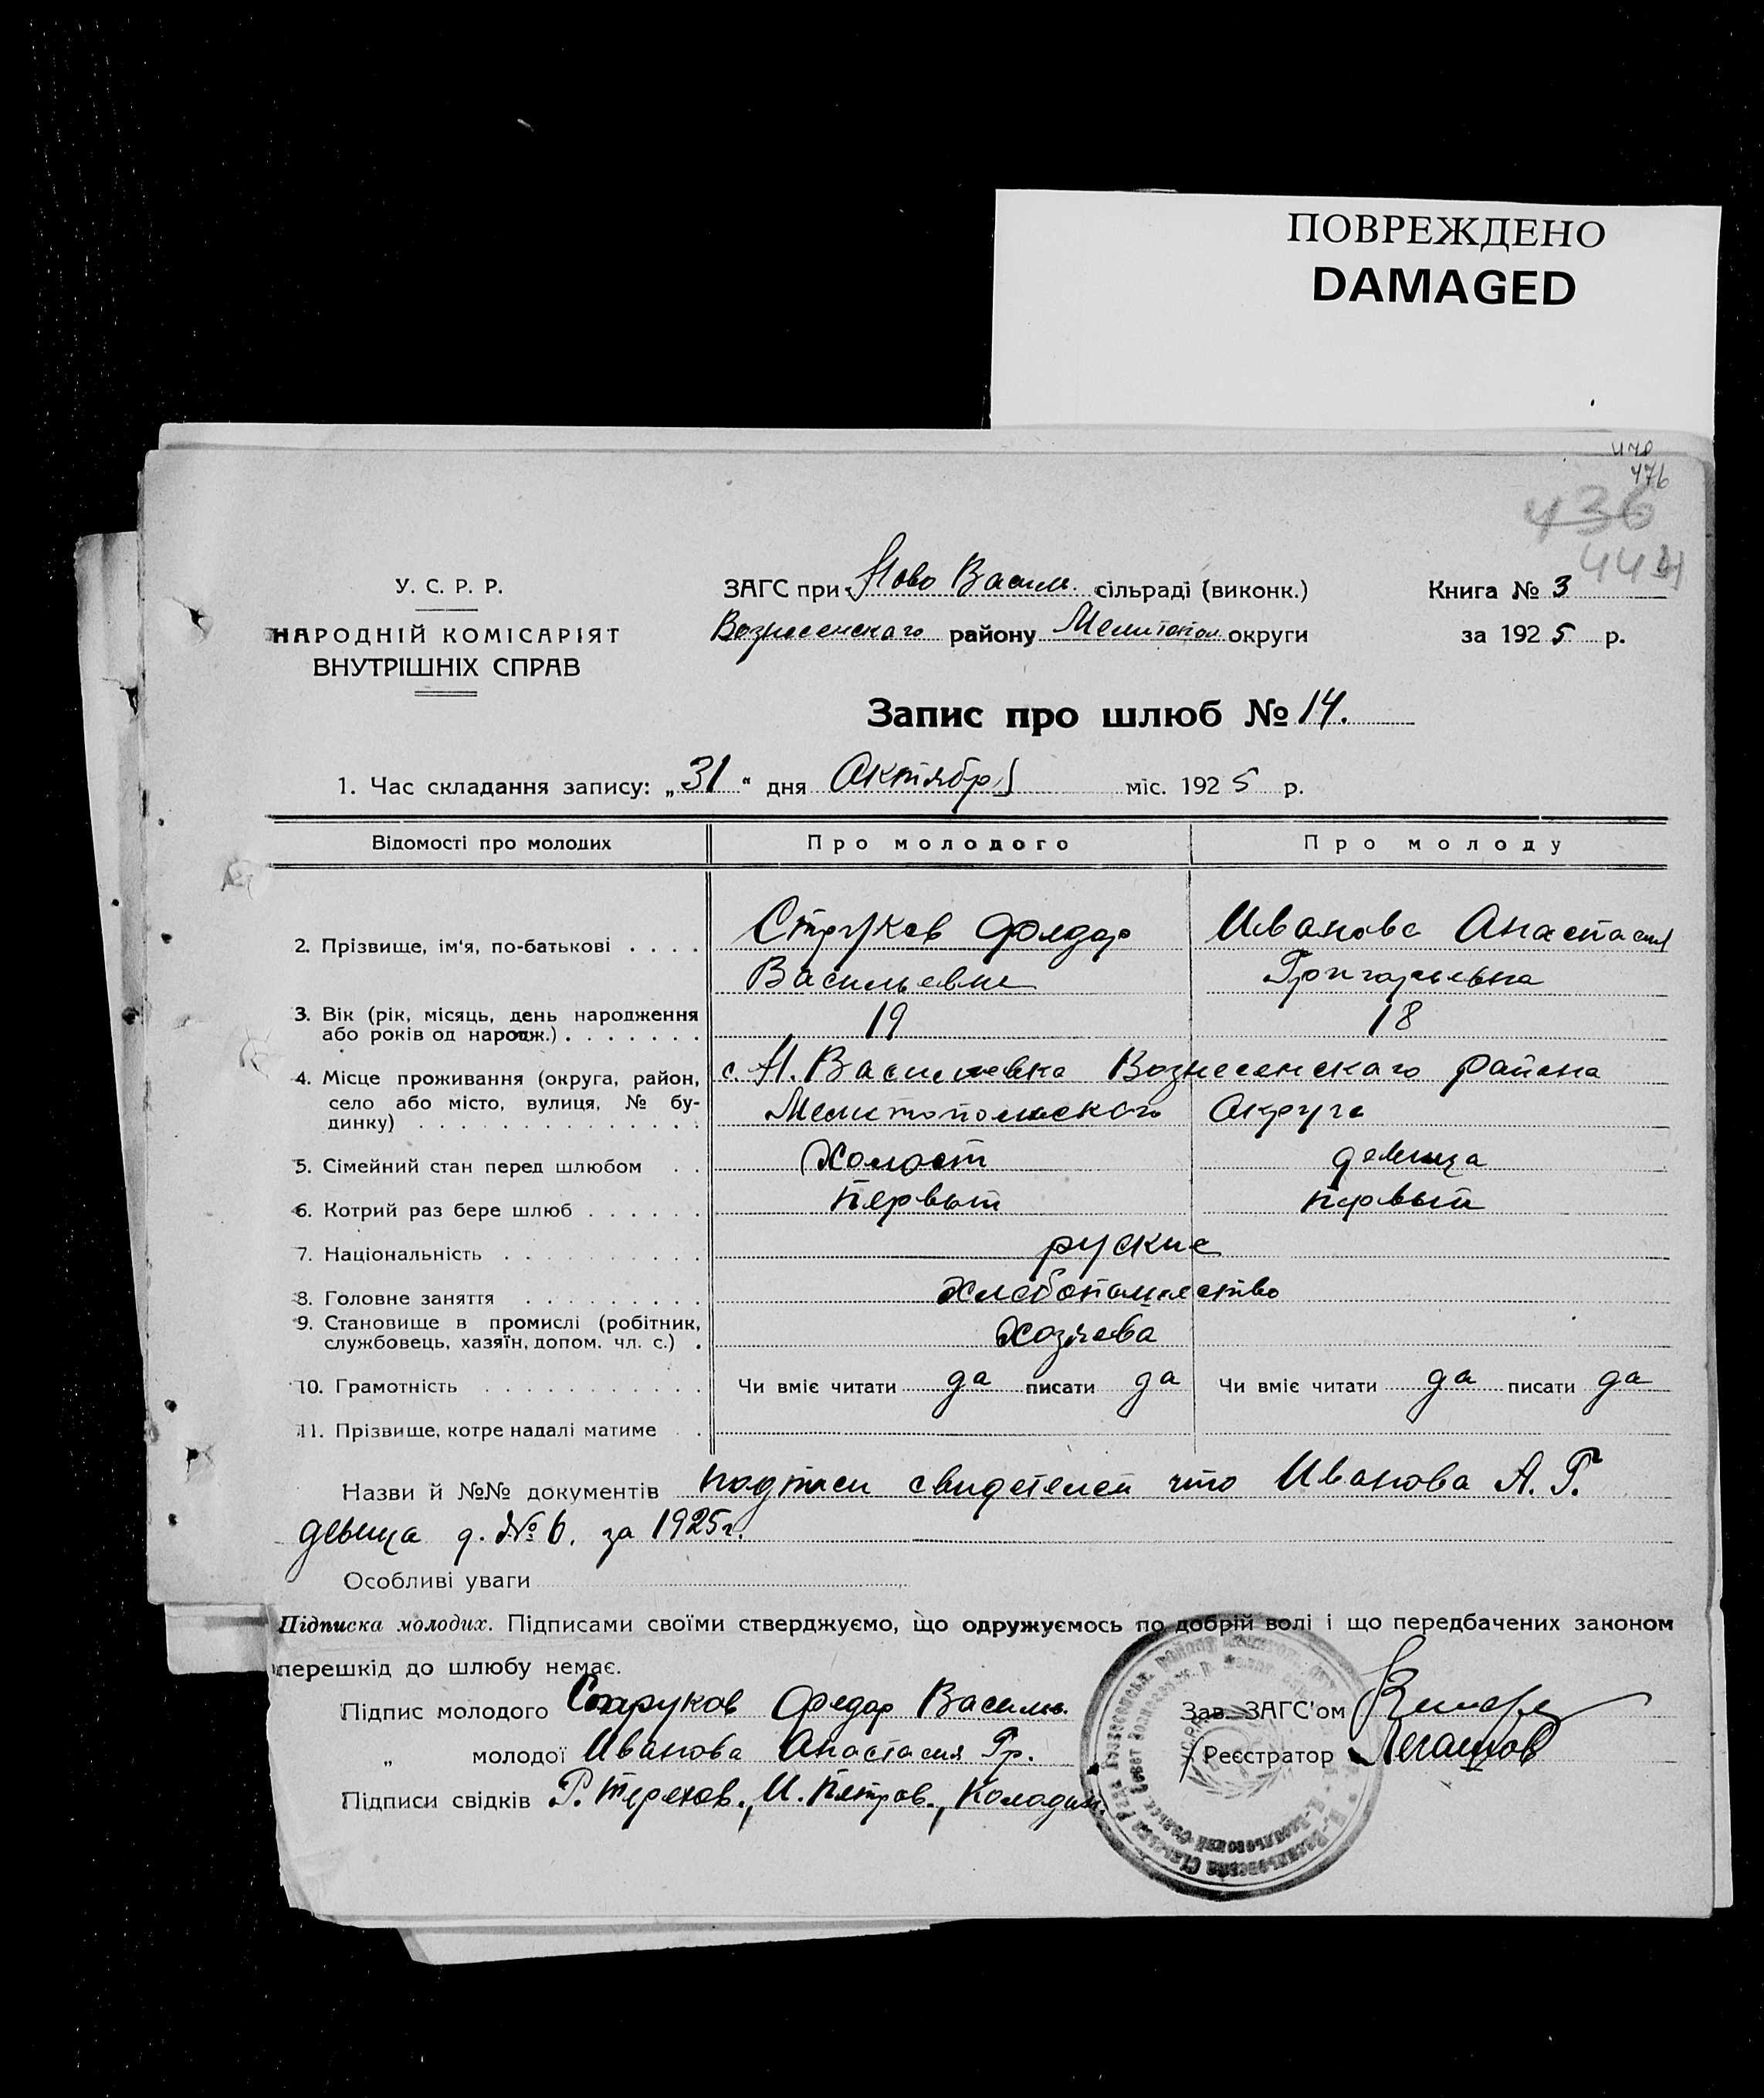 ПОВРЕЖДЕНО
DAMAGED
476
436
У. С. Р. Р.
НАРОДНІЙ КОМІСАРІЯТ
ВНУТРІШНІХ СПРАВ
ЗАГС при Ново Васил. сільраді (виконк.)
Вознесенскаго району Мелитопол округи
Книга № 3
за 1925 р.
Запис про шлюб № 14.
1. Час складання запису: „31“ дня Октября міс. 1925 р.
Відомості про молодих Про молодого Про молоду
2. Прізвище, ім'я, по-батькові . . . . Струков Федор Иванова Анастасия
Васильевич Григорьевна
3. Вік (рік, місяць, день народження
або років од народж.) . . . . . . . 19 18
4. Місце проживання (округа, район, с. Н. Васильевка Вознесенскаго района
село або місто, вулиця, № бу-
динку) . . . . . . . . . . . . . . Мелитопольскаго Округа
5. Сімейний стан перед шлюбом . . Холост девица
6. Котрий раз бере шлюб . . . . . . Первый первый
7. Національність . . . . . . . . . . руские
8. Головне заняття . . . . . . . . . хлебопашество
9. Становище в промислі (робітник,
службовець, хазяїн, допом. чл. с.) . Хозяева
10. Грамотність . . . . . . . . . . . Чи вміє читати да писати да Чи вміє читати да писати да
11. Прізвище, котре надалі матиме . .
Назви й №№ документів подписи свидетелей что Иванова А. Г.
девица д. № 6. за 1925 г.
Особливі уваги
Підписка молодих. Підписами своїми стверджуємо, що одружуємось по добрій волі і що передбачених законом
перешкід до шлюбу немає.
Підпис молодого Струков Федор Василь.
Зав. ЗАГС'ом
„ молодої Иванова Анастасия Гр.
Реєстратор Легашов
Підписи свідків Г. Терехов., И. Петров.,